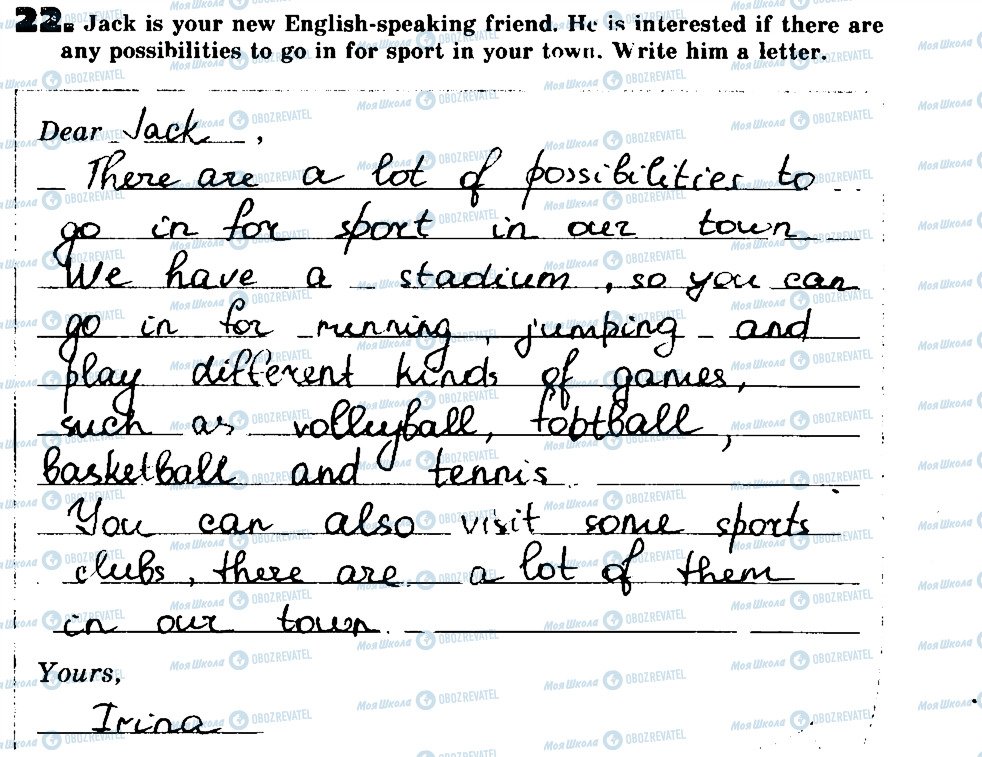 22. Jack is your new English-speaking friend. He is interested if there are
any possibilities to go in for sport in your town. Write him a letter.
Dear Jack,
There are a lot of possibilities to
go in for sport in our town
We have a stadium, so you can
go in for running, jumping and
play different kinds of games,
such as volleyball, football,
basketball and tennis.
You can also visit some sports
clubs, there are a lot of them
in our town.
Yours,
Irina
Моя Школа OBOZREVATEL